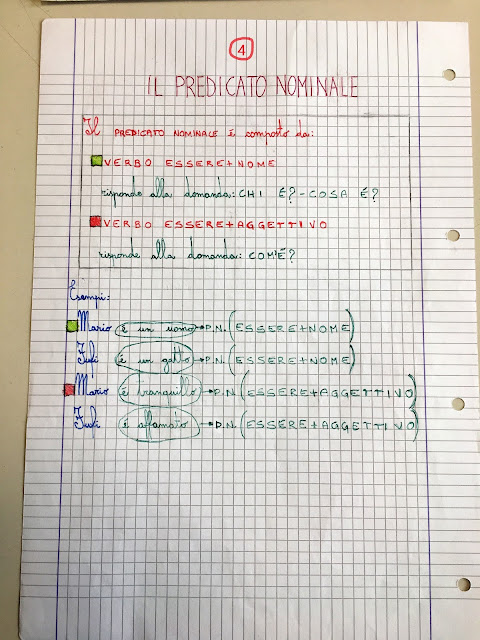 4
IL PREDICATO NOMINALE
Il PREDICATO NOMINALE È composto da:
VERBO ESSERE+NOME
risponde alla domanda: CHI É?-COSA É?
VERBO ESSERE+AGGETTIVO
risponde alla domanda: COM'É?
Esempi:
Mario è un uomo P.N. (ESSERE+NOME)
Fufi è un gatto P.N. (ESSERE+NOME)
Mario è tranquillo P.N (ESSERE+AGGETTIVO)
Fufi è affamato P.N. (ESSERE+AGGETTIVO)